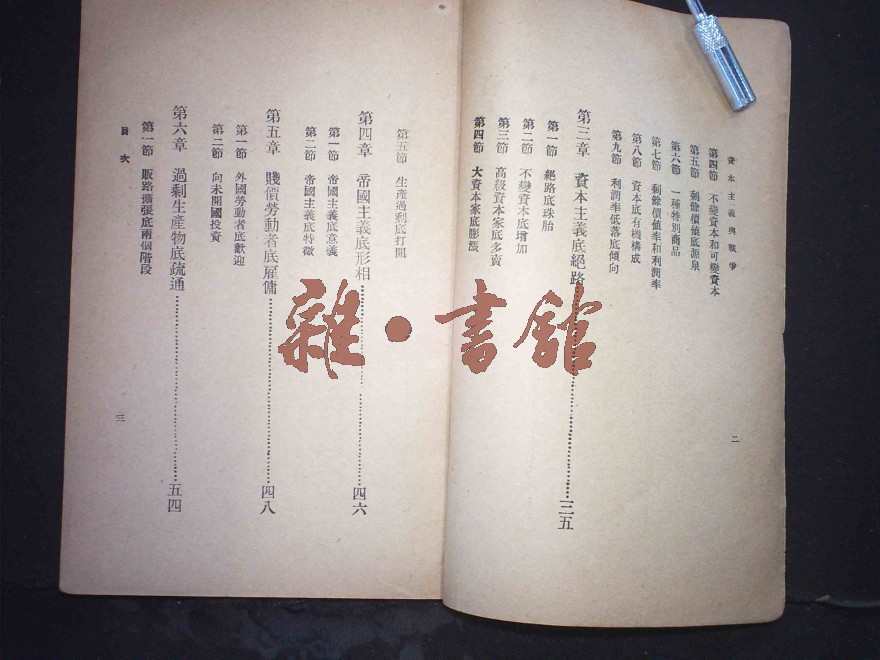 資本主義與戰爭
第四節　不變資本和可變資本
第五節　剩餘價値底源泉
第六節　一種特別商品
第七節　剩餘價値率和利潤率
第八節　資本底有機構成
第九節　利潤率低落底傾向
第三章　資本主義底絕路……三五
第一節　絕路底珠胎
第二節　不變資本底增加
第三節　高級資本家底多賣
第四節　大資本家底膨漲
二
第五節　生產過剩底打開
第四章　帝國主義底形相……四六
第一節　帝國主義底意義
第二節　帝國主義底特徵
第五章　賤價勞動者底雇傭……四八
第一節　外國勞動者底歡迎
第二節　向未開國投資
第六章　過剩生產物底疏通……五四
第一節　販路擴張底兩個階段
目次
三
雜·書館